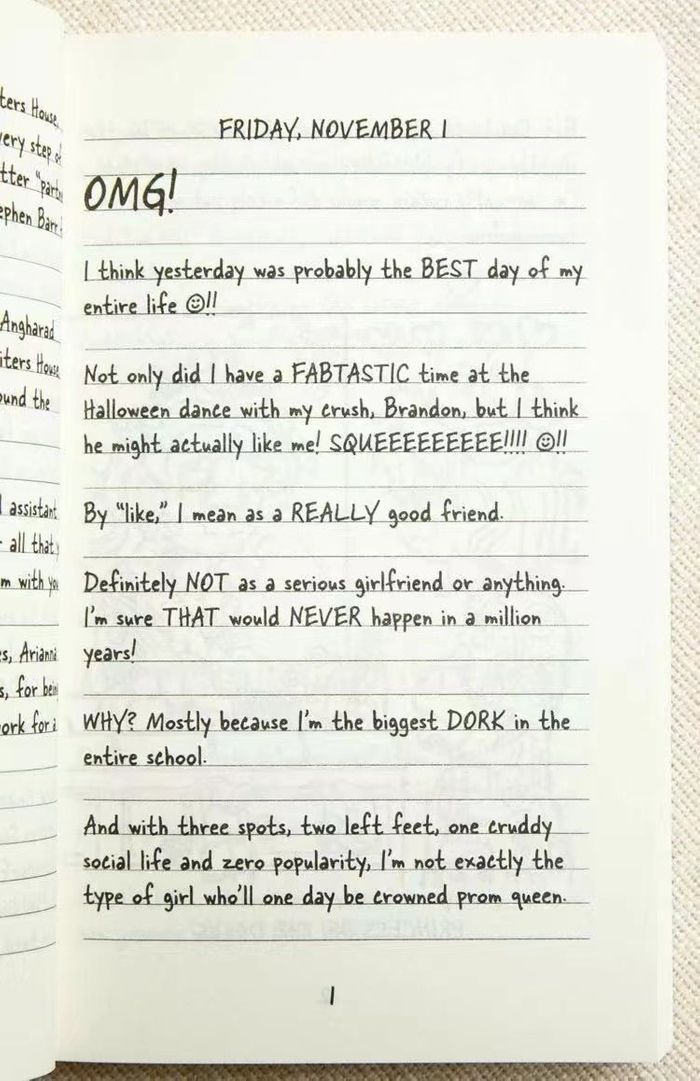 ters House,
very step of
tter "partn
ephen Barr
Angharad
iters House
ound the
assistant
all that
m with you
es, Arianna
s, for bein
ork for i
FRIDAY, NOVEMBER 1
OMG!
I think yesterday was probably the BEST day of my
entire life ☺!!
Not only did I have a FABTASTIC time at the
Halloween dance with my crush, Brandon, but I think
he might actually like me! SQUEEEEEEEEE!!!! ☺!!
By “like,” I mean as a REALLY good friend.
Definitely NOT as a serious girlfriend or anything.
I'm sure THAT would NEVER happen in a million
years!
WHY? Mostly because I'm the biggest DORK in the
entire school.
And with three spots, two left feet, one cruddy
social life and zero popularity, I'm not exactly the
type of girl who'll one day be crowned prom queen.
1